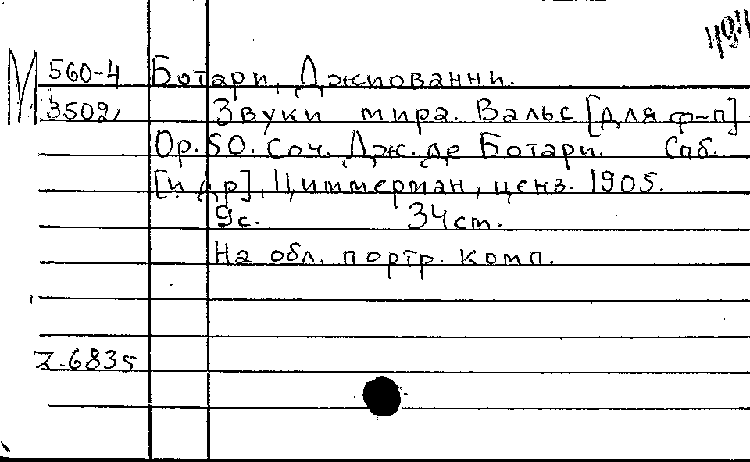 М 560-4 Ботари, Джиованни.
3502, Звуки мира. Вальс [для ф-п]
Op. 50. Соч. Дж. де Ботари. Спб.
[и др], Циммерман, ценз. 1905.
9с. 34 cm.
На обл. портр. комп.
Z.6835